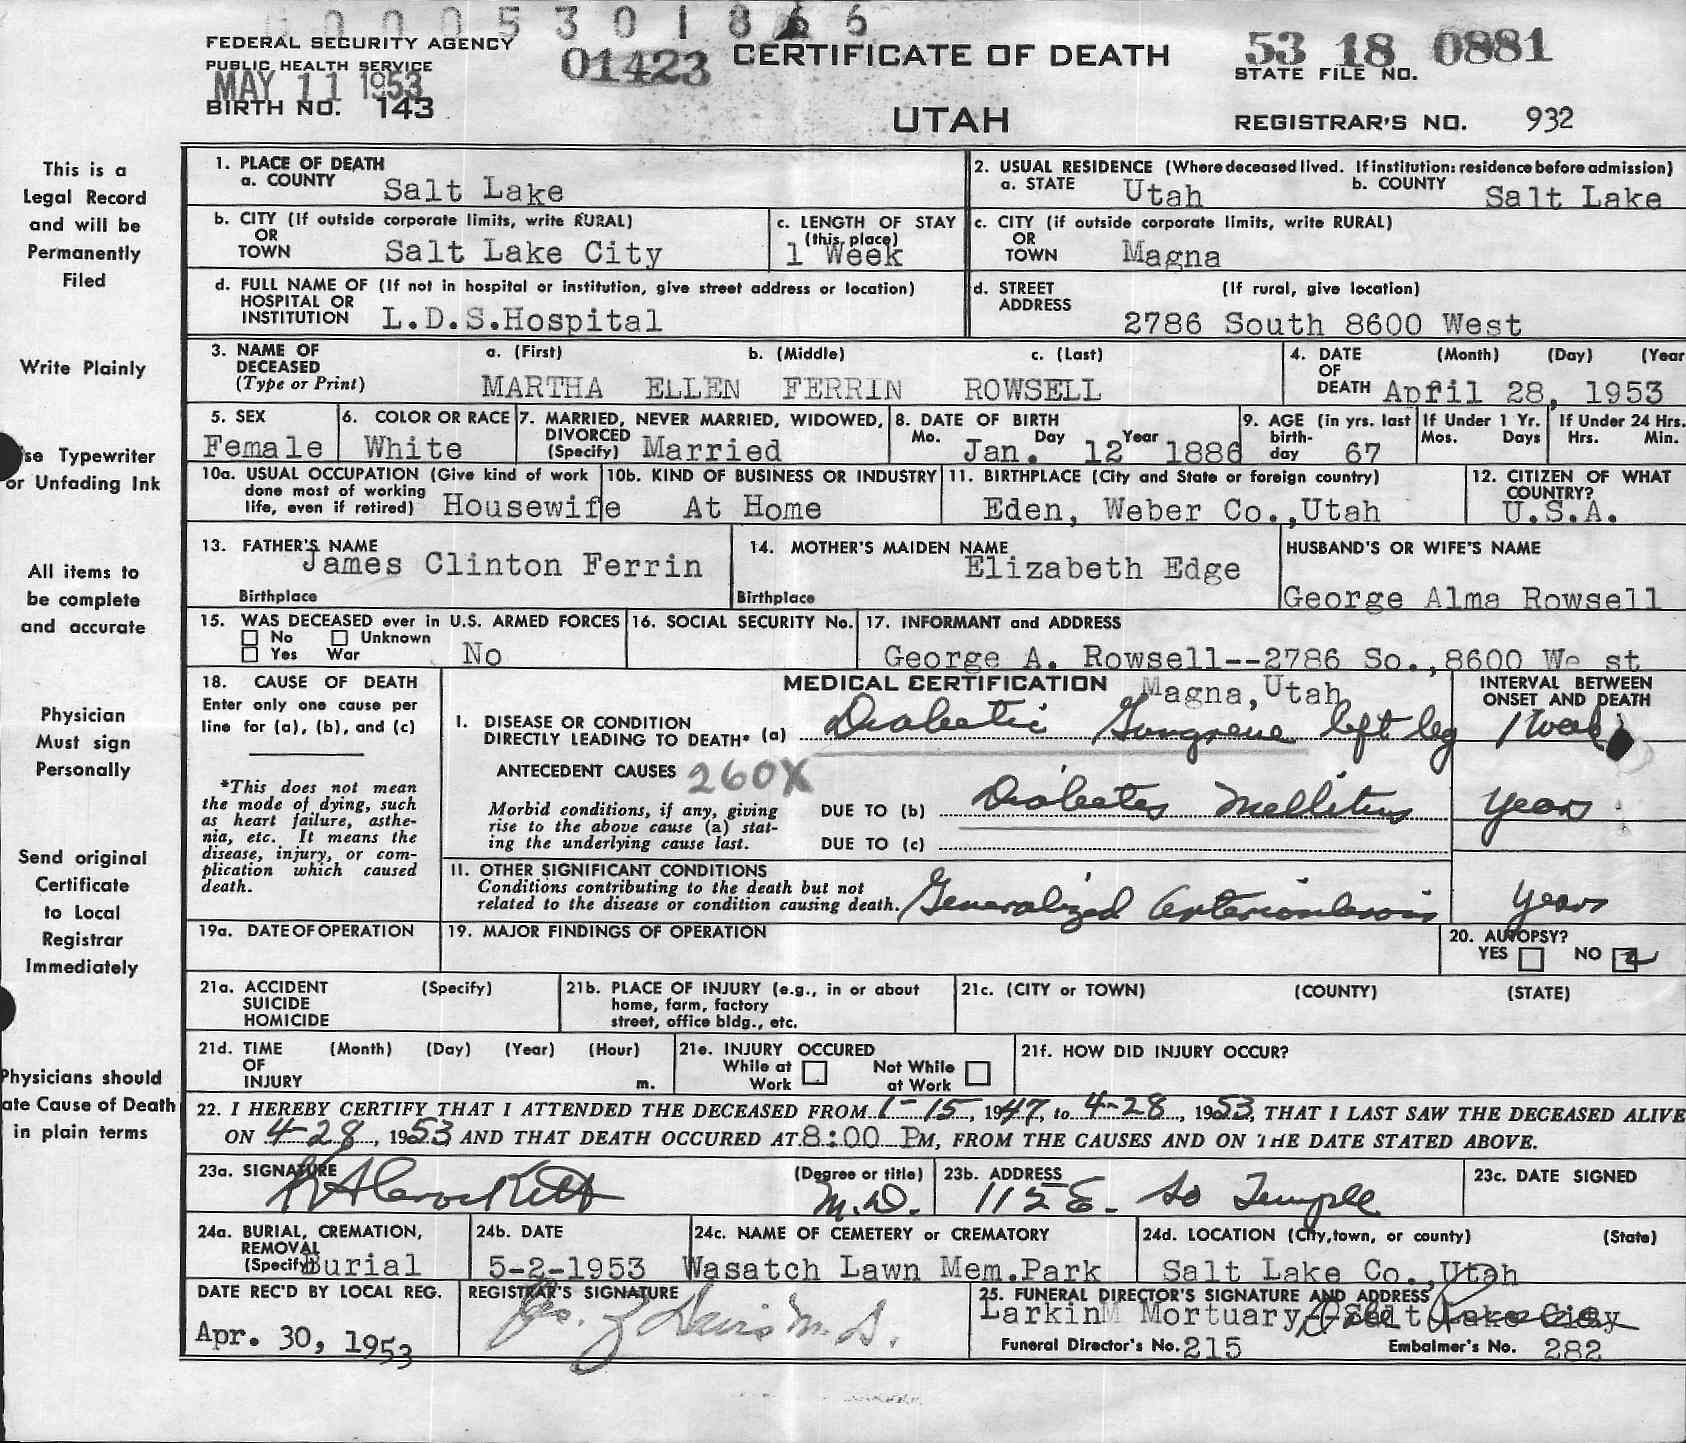 0 0 0 0 5 3 0 1 8 6 6
FEDERAL SECURITY AGENCY
PUBLIC HEALTH SERVICE
MAY 11 1953
BIRTH NO. 143
01423
CERTIFICATE OF DEATH
UTAH
53 18 0881
STATE FILE NO.
REGISTRAR'S NO. 932
This is a
Legal Record
and will be
Permanently
Filed
Write Plainly
se Typewriter
or Unfading Ink
All items to
be complete
and accurate
Physician
Must sign
Personally
Send original
Certificate
to Local
Registrar
Immediately
Physicians should
ate Cause of Death
in plain terms
1. PLACE OF DEATH
a. COUNTY Salt Lake
2. USUAL RESIDENCE (Where deceased lived. If institution: residence before admission)
a. STATE Utah b. COUNTY Salt Lake
b. CITY (If outside corporate limits, write RURAL)
OR
TOWN Salt Lake City
c. LENGTH OF STAY
(this place)
1 Week
c. CITY (if outside corporate limits, write RURAL)
OR
TOWN Magna
d. FULL NAME OF (If not in hospital or institution, give street address or location)
HOSPITAL OR
INSTITUTION L.D.S.Hospital
d. STREET (If rural, give location)
ADDRESS
2786 South 8600 West
3. NAME OF a. (First) b. (Middle) c. (Last)
DECEASED
(Type or Print) MARTHA ELLEN FERRIN ROWSELL
4. DATE (Month) (Day) (Year
OF
DEATH April 28, 1953
5. SEX
Female
6. COLOR OR RACE
White
7. MARRIED, NEVER MARRIED, WIDOWED,
DIVORCED
(Specify) Married
8. DATE OF BIRTH
Mo. Day Year
Jan. 12 1886
9. AGE (in yrs. last
birth-
day 67
If Under 1 Yr.
Mos. Days
If Under 24 Hrs.
Hrs. Min.
10a. USUAL OCCUPATION (Give kind of work
done most of working
life, even if retired) Housewife
10b. KIND OF BUSINESS OR INDUSTRY
At Home
11. BIRTHPLACE (City and State or foreign country)
Eden, Weber Co.,Utah
12. CITIZEN OF WHAT
COUNTRY?
U.S.A.
13. FATHER'S NAME
James Clinton Ferrin
Birthplace
14. MOTHER'S MAIDEN NAME
Elizabeth Edge
Birthplace
HUSBAND'S OR WIFE'S NAME
George Alma Rowsell
15. WAS DECEASED ever in U.S. ARMED FORCES
No Unknown
Yes War No
16. SOCIAL SECURITY No.
17. INFORMANT and ADDRESS
George A. Rowsell--2786 So.,8600 We st
Magna,Utah
18. CAUSE OF DEATH
Enter only one cause per
line for (a), (b), and (c)
*This does not mean
the mode of dying, such
as heart failure, asthe-
nia, etc. It means the
disease, injury, or com-
plication which caused
death.
MEDICAL CERTIFICATION
INTERVAL BETWEEN
ONSET AND DEATH
I. DISEASE OR CONDITION
DIRECTLY LEADING TO DEATH* (a) Diabetic Gangrene left leg 1 Week
ANTECEDENT CAUSES 260X
Morbid conditions, if any, giving
rise to the above cause (a) stat-
ing the underlying cause last.
DUE TO (b) Diabetes Mellitus years
DUE TO (c)
II. OTHER SIGNIFICANT CONDITIONS
Conditions contributing to the death but not
related to the disease or condition causing death. Generalized Arteriosclerosis years
19a. DATE OF OPERATION
19. MAJOR FINDINGS OF OPERATION
20. AUTOPSY?
YES NO
21a. ACCIDENT (Specify)
SUICIDE
HOMICIDE
21b. PLACE OF INJURY (e.g., in or about
home, farm, factory
street, office bldg., etc.
21c. (CITY or TOWN) (COUNTY) (STATE)
21d. TIME (Month) (Day) (Year) (Hour)
OF
INJURY m.
21e. INJURY OCCURED
While at Not While
Work at Work
21f. HOW DID INJURY OCCUR?
22. I HEREBY CERTIFY THAT I ATTENDED THE DECEASED FROM 1-15, 1947, to 4-28, 1953, THAT I LAST SAW THE DECEASED ALIVE
ON 4-28, 1953 AND THAT DEATH OCCURED AT 8:00 PM, FROM THE CAUSES AND ON THE DATE STATED ABOVE.
23a. SIGNATURE (Degree or title)
Crockett M.D.
23b. ADDRESS
115 E. So Temple
23c. DATE SIGNED
24a. BURIAL, CREMATION,
REMOVAL
(Specify) Burial
24b. DATE
5-2-1953
24c. NAME OF CEMETERY or CREMATORY
Wasatch Lawn Mem.Park
24d. LOCATION (City, town, or county) (State)
Salt Lake Co.,Utah
DATE REC'D BY LOCAL REG.
Apr. 30, 1953
REGISTRAR'S SIGNATURE
Davis M.D.
25. FUNERAL DIRECTOR'S SIGNATURE AND ADDRESS
Larkin Mortuary, Salt Lake City
Funeral Director's No. 215 Embalmer's No. 282